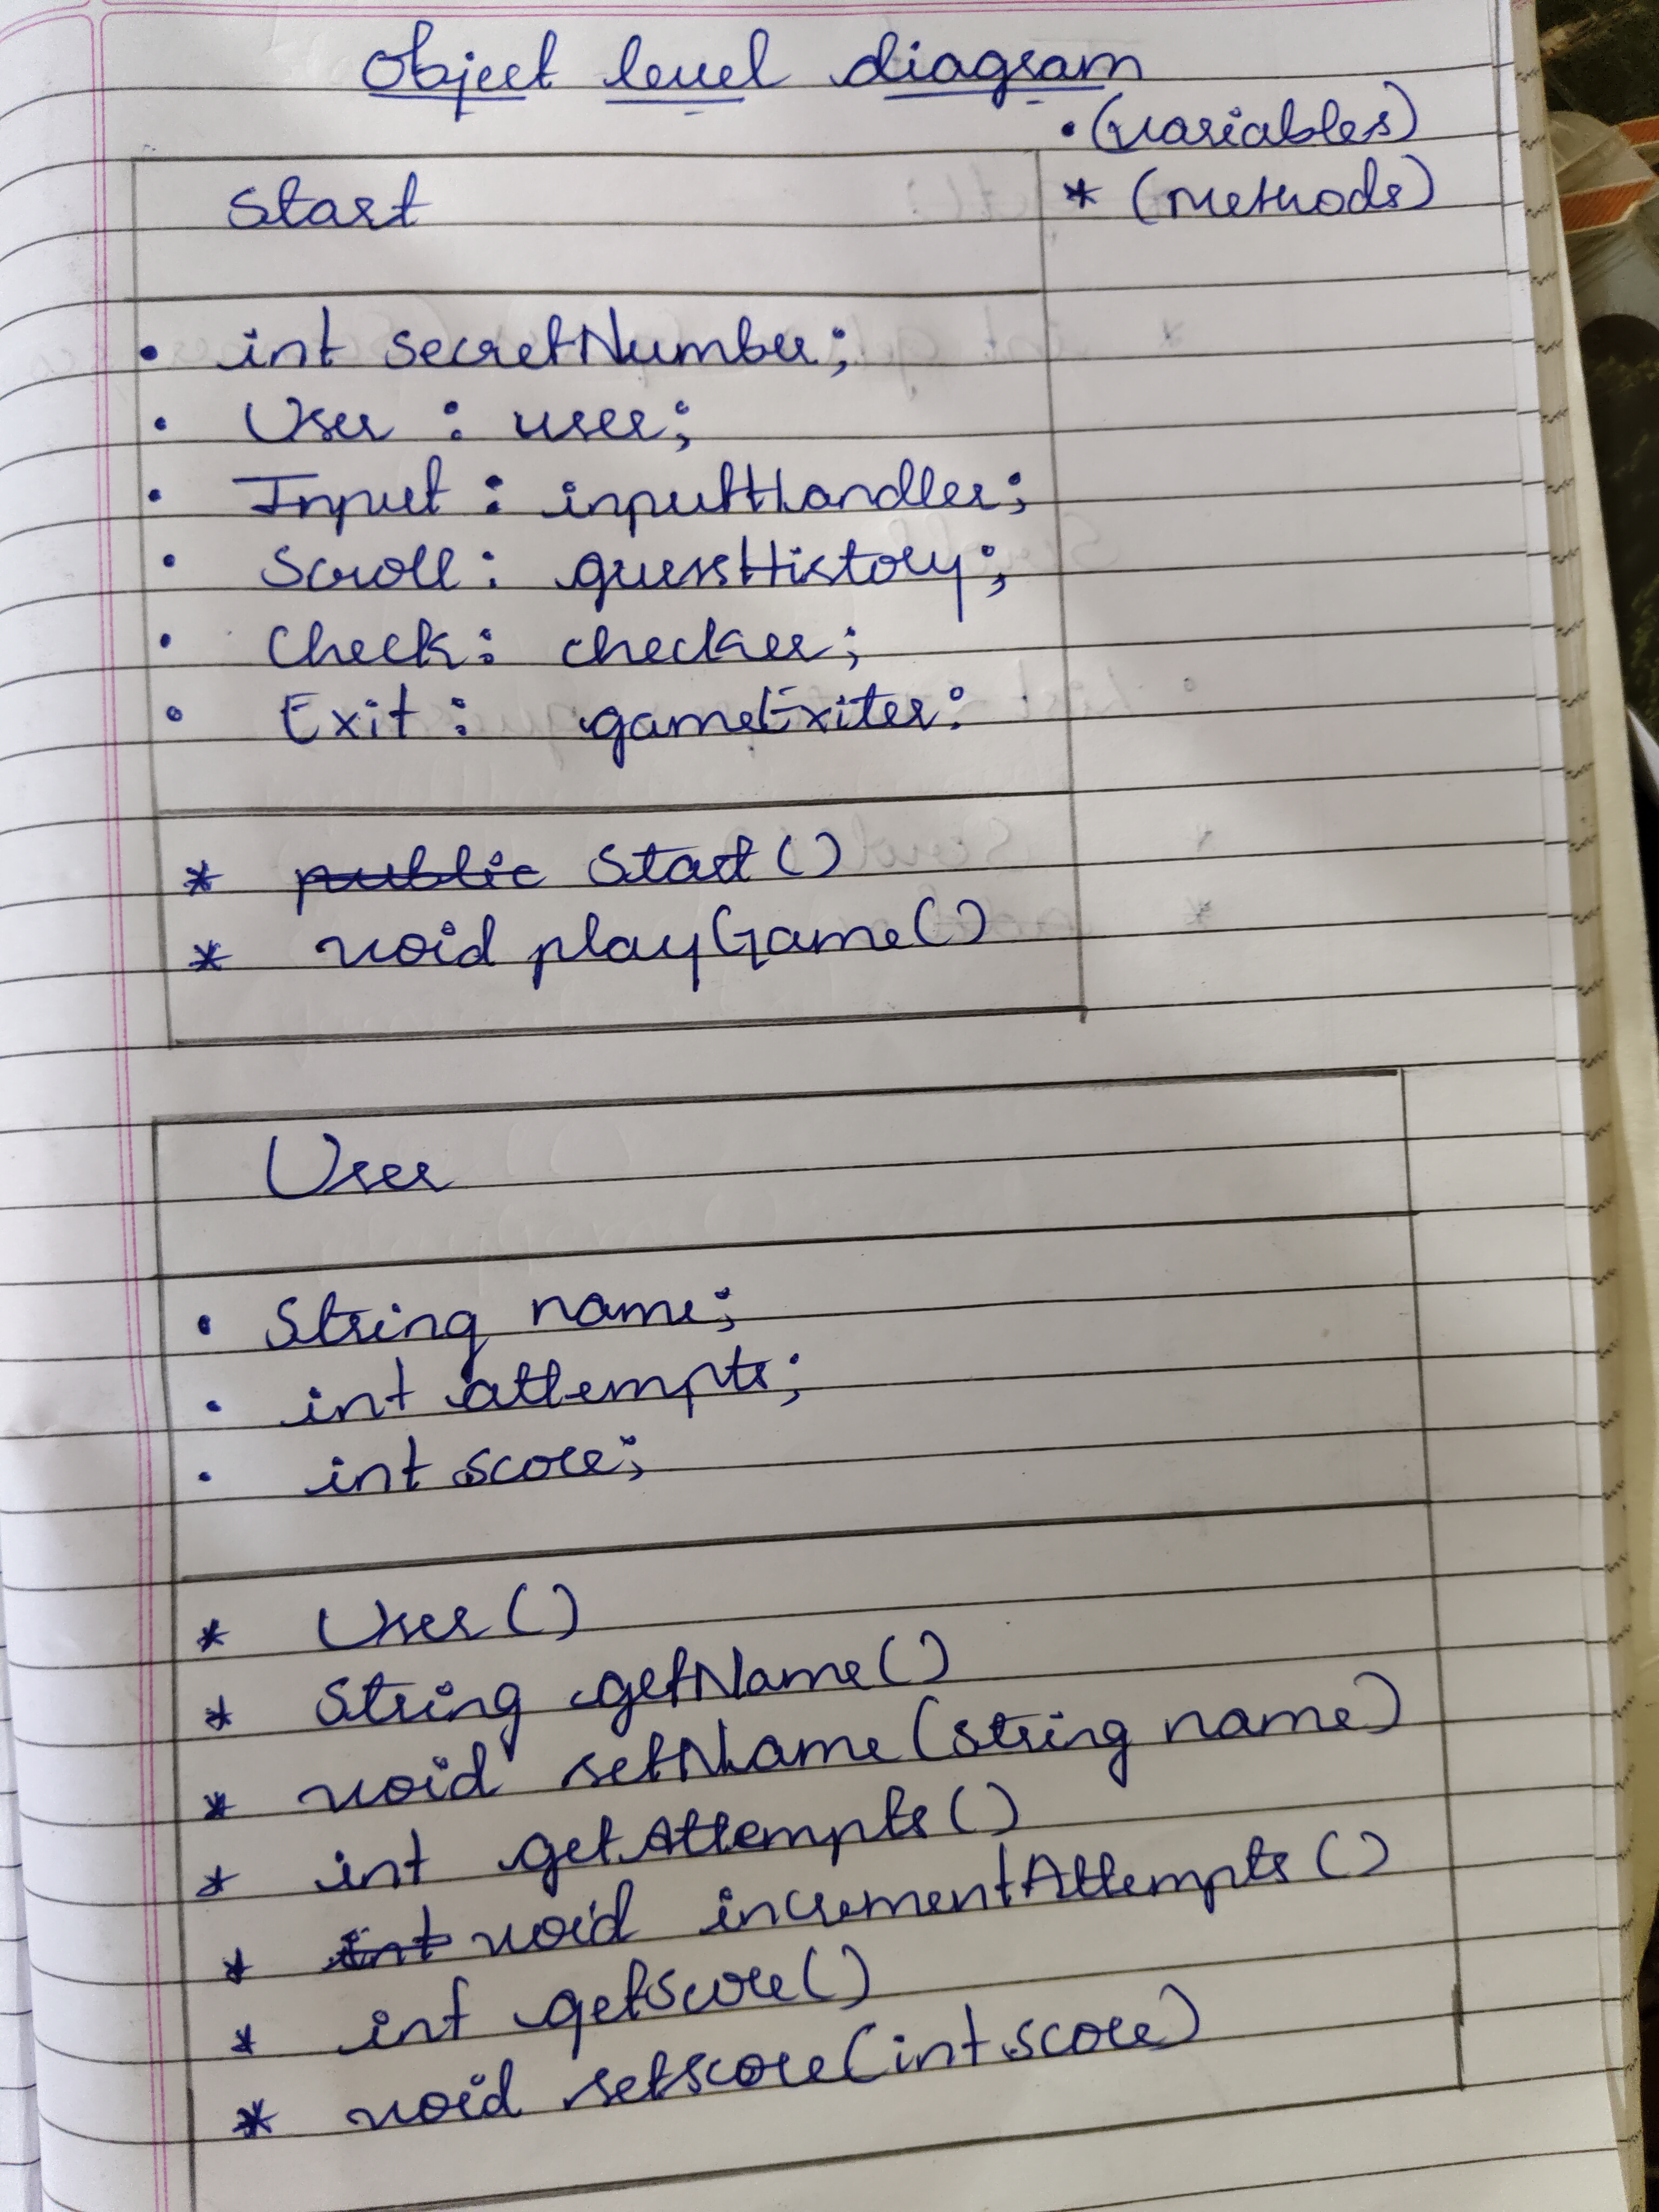 Object level diagram
• (variables)
* (methods)
Start
• int secretNumber;
• User : user;
• Input : inputHandler;
• Scroll : guessHistory;
• Check : checker;
• Exit : gameExiter:
* public Start()
* void playGame()
User
• String name;
• int attempts;
• int score;
* User()
* String getName()
* void setName(string name)
* int getAttempts()
* int void incrementAttempts()
* int getscore()
* void setscore(int score)